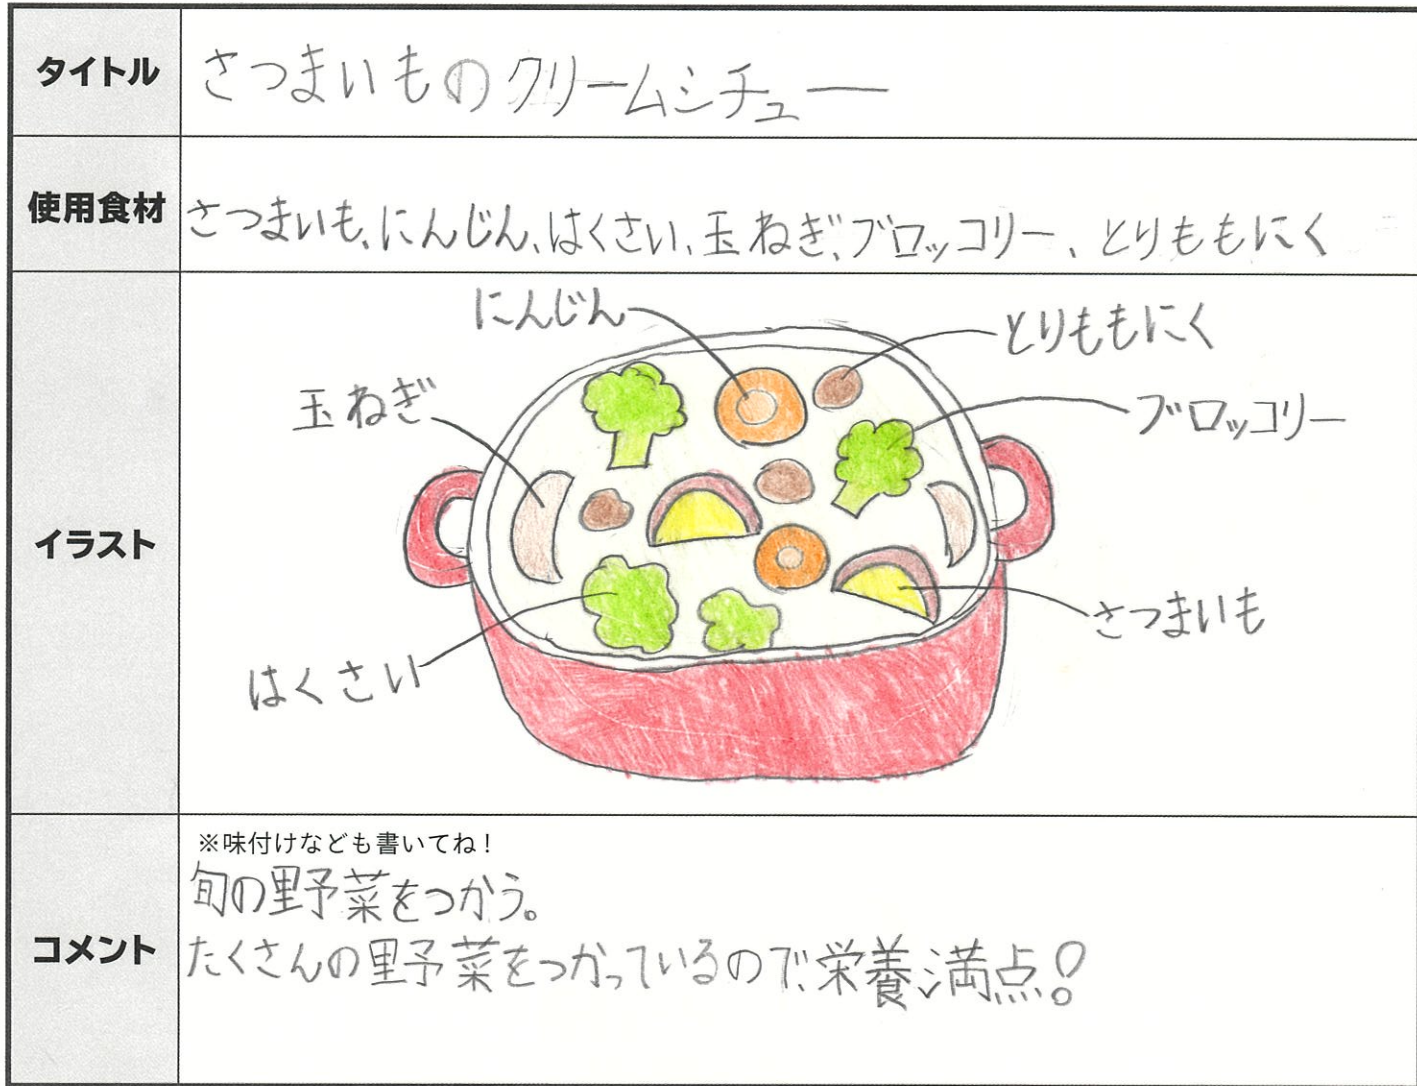 タイトル
さつまいものクリームシチュー
使用食材
さつまいも、にんじん、はくさい、玉ねぎ、ブロッコリー、とりももにく
イラスト
にんじん
とりももにく
玉ねぎ
ブロッコリー
さつまいも
はくさい
コメント
※味付けなども書いてね!
旬の野菜をつかう。
たくさんの野菜をつかっているので、栄養満点!